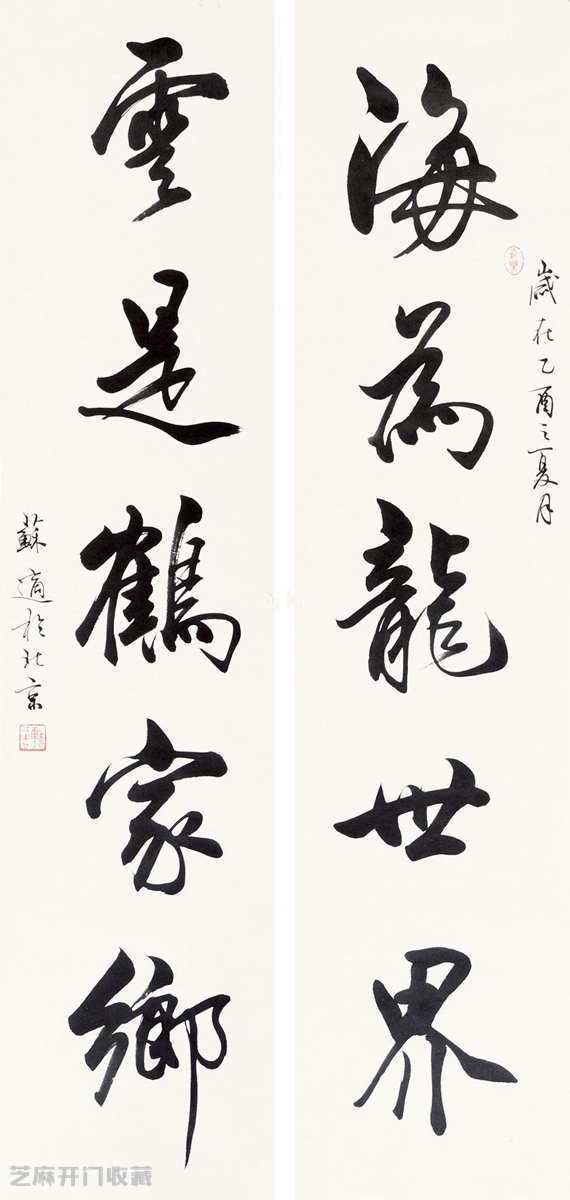 海為龍世界
歲在乙酉之夏月
雲是鶴家鄉
蘇適於北京
芝麻开门收藏